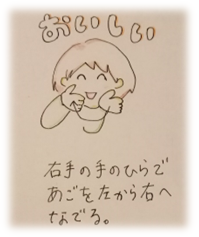 おいしい
右手の手のひらで
あごを左から右へ
なでる。